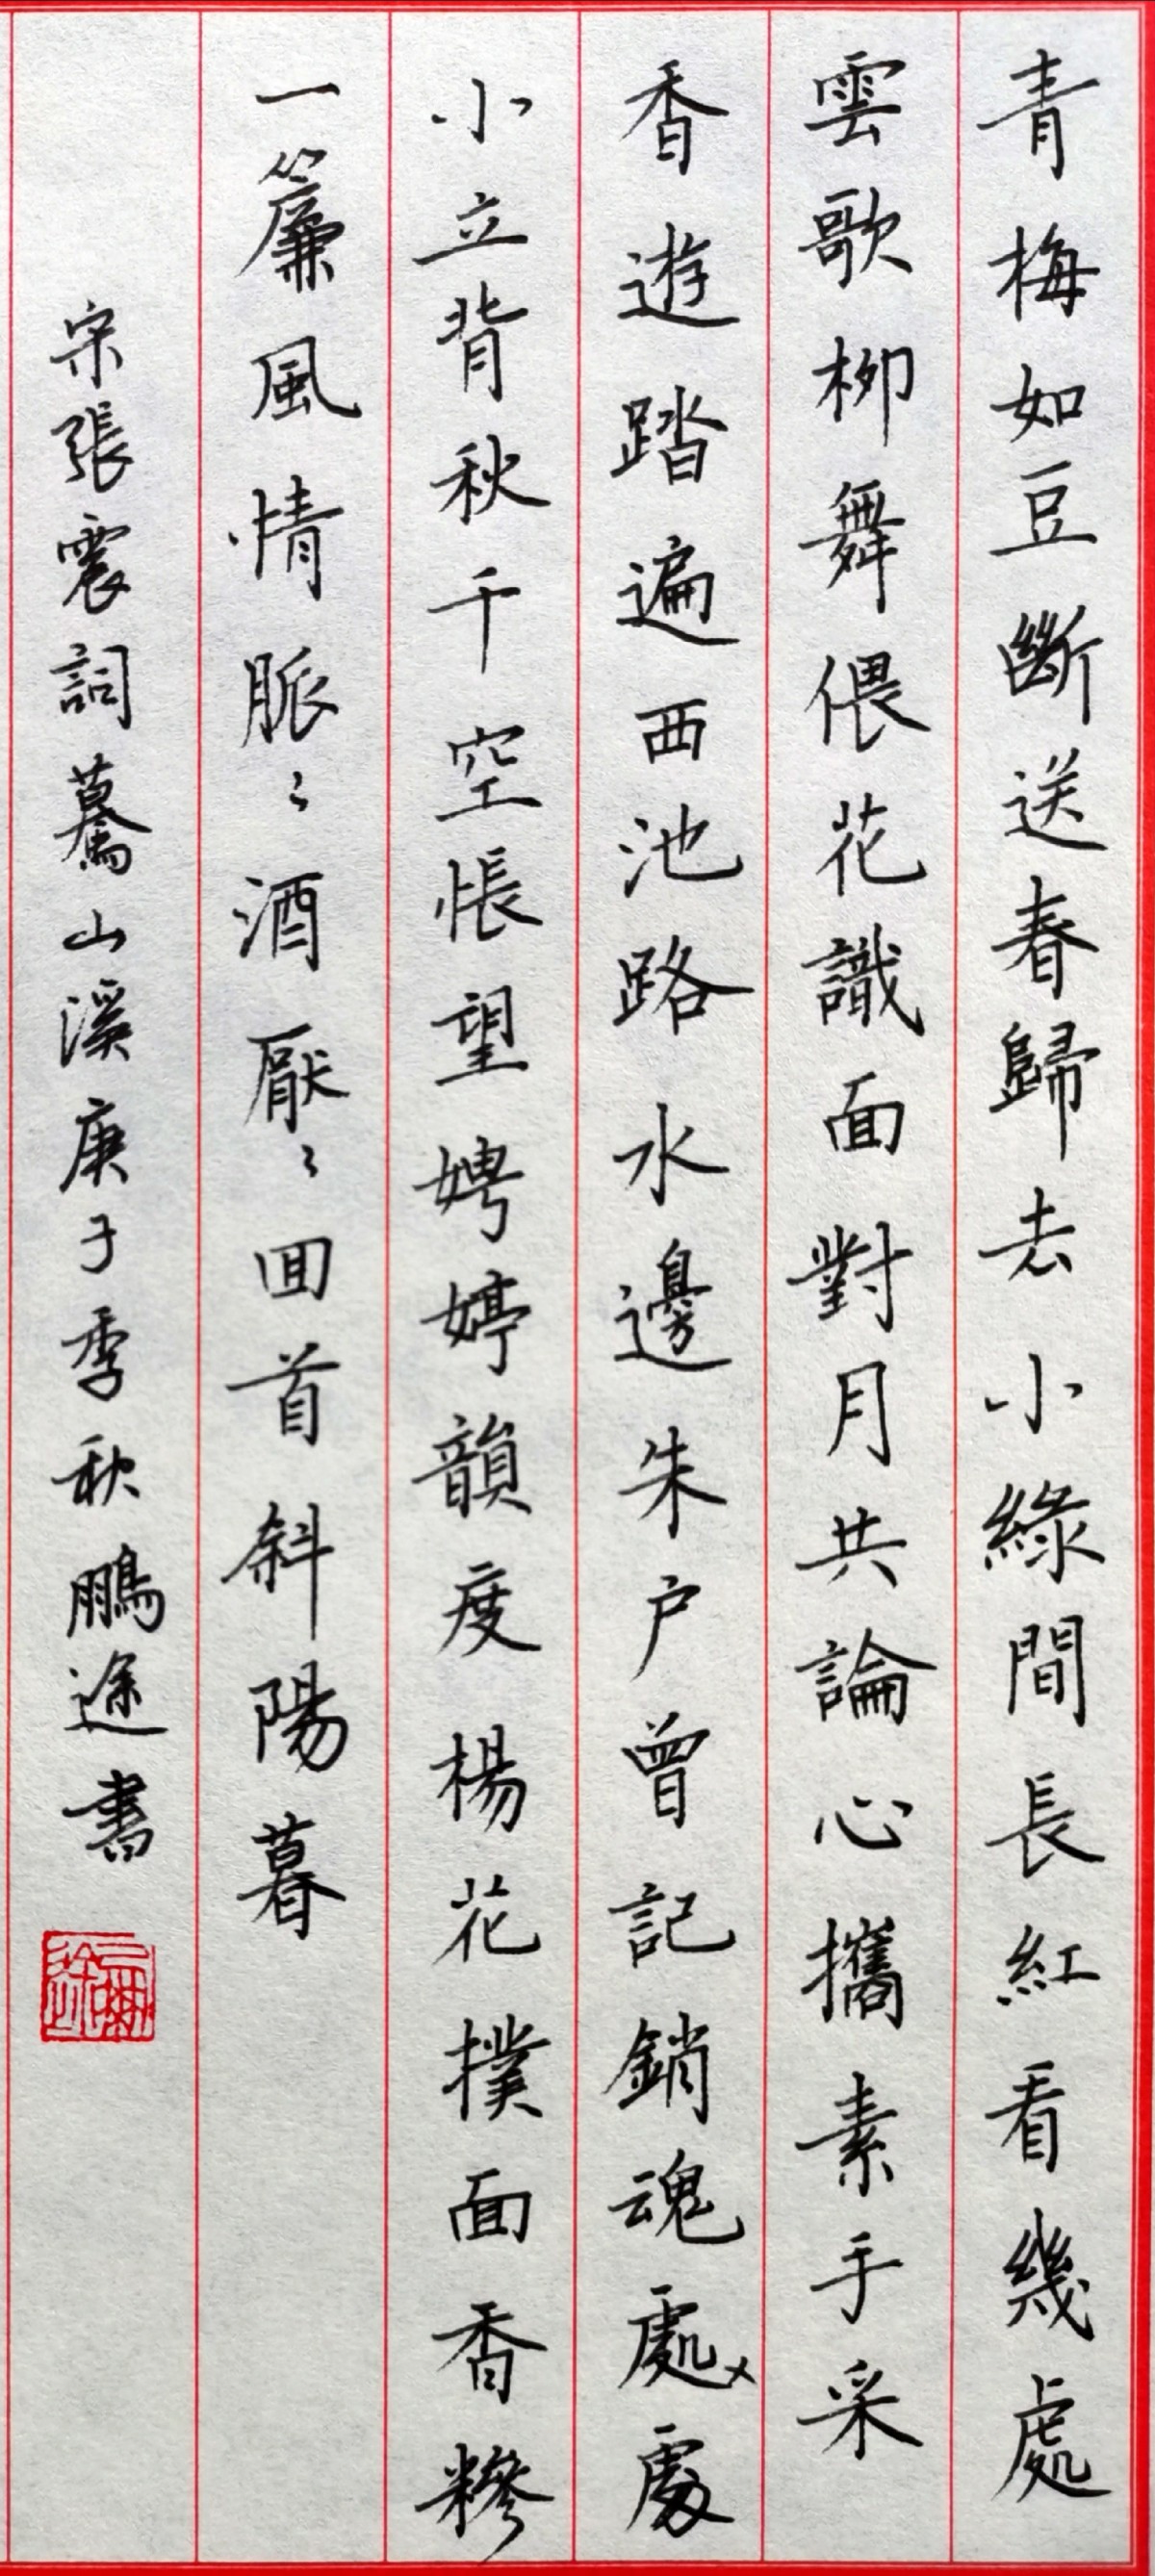 青梅如豆斷送春歸去小綠間長紅看幾處
雲歌柳舞偎花識面對月共論心攜素手采
香遊踏遍西池路水邊朱户曾記銷魂處處
小立背秋千空悵望娉婷韻度楊花撲面香糝
一簾風情脈〻酒厭〻回首斜陽暮
宋張震詞驀山溪庚子季秋鵬途書